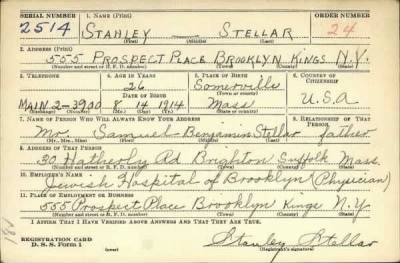 SERIAL NUMBER 1. NAME (Print) ORDER NUMBER
2514 STANLEY — STELLAR 24
(First) (Middle) (Last)
2. ADDRESS (Print)
555 PROSPECT PLACE BROOKLYN KINGS N.Y.
(Number and street or R. F. D. number) (Town) (County) (State)
3. TELEPHONE 4. AGE IN YEARS 5. PLACE OF BIRTH 6. COUNTRY OF CITIZENSHIP
26 Somerville
DATE OF BIRTH (Town or county)
MAIN 2-3900 8 14 1914 Mass U.S.A
(Exchange) (Number) (Mo.) (Day) (Yr.) (State or country)
7. NAME OF PERSON WHO WILL ALWAYS KNOW YOUR ADDRESS 8. RELATIONSHIP OF THAT PERSON
Mr. Samuel Benjamin Stellar father
(Mr., Mrs., Miss) (First) (Middle) (Last)
9. ADDRESS OF THAT PERSON
30 Hatherly Rd Brighton Suffolk Mass
(Number and street or R. F. D. number) (Town) (County) (State)
10. EMPLOYER'S NAME
Jewish Hospital of Brooklyn (Physician)
11. PLACE OF EMPLOYMENT OR BUSINESS
555 Prospect Place Brooklyn Kings N.Y
(Number and street or R. F. D. number) (Town) (County) (State)
I AFFIRM THAT I HAVE VERIFIED ABOVE ANSWERS AND THAT THEY ARE TRUE.
REGISTRATION CARD Stanley Stellar
D. S. S. Form 1 (over) (Registrant's signature)